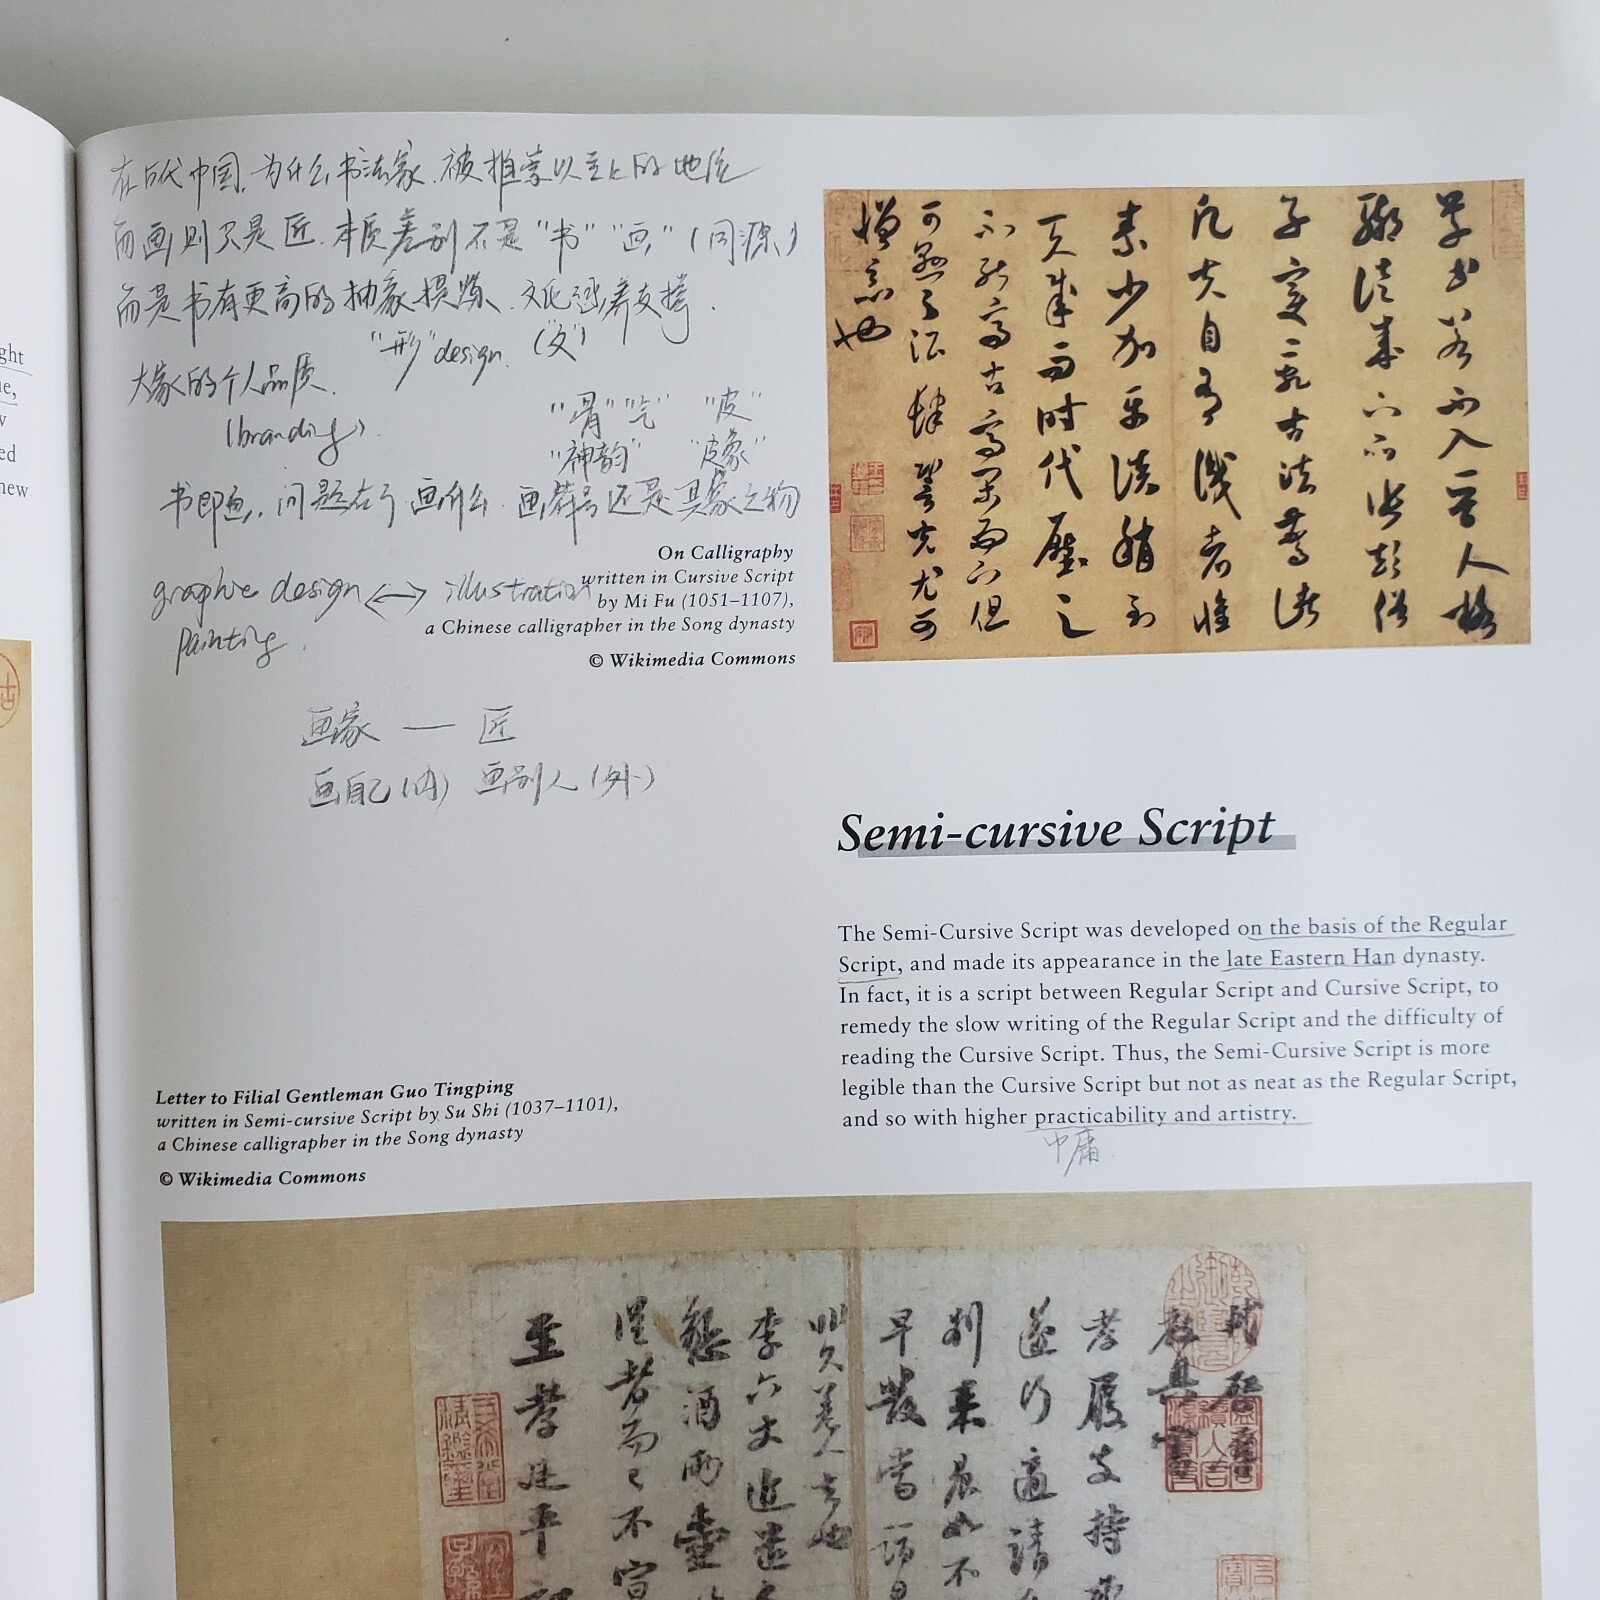 在古代中国,为什么书法家,被推崇以至上的地位
而画则只是匠.本质差别不是"书""画"(同源)
而是书有更高的抽象提炼、文化涵养支撑.
"形"design. ("文")
大家的个人品质.
(branding).
"骨""气" "皮"
"神韵" "皮象"
书即画,问题在于画什么.画符号还是具象之物
graphic design ↔ illustration
painting.
画家 — 匠
画自己(内) 画别人(外)
On Calligraphy
written in Cursive Script
by Mi Fu (1051–1107),
a Chinese calligrapher in the Song dynasty
© Wikimedia Commons
草书若不入晋人格
辄徒成下品张颠俗
子变乱古法惊诸
凡夫自有识者怀
素少加平淡稍到
天成而时代压之
不能高古高闲而下但
可悬之酒肆䛒光尤可
憎恶也
ght
e,
w
ed
new
Semi-cursive Script
The Semi-Cursive Script was developed on the basis of the Regular
Script, and made its appearance in the late Eastern Han dynasty.
In fact, it is a script between Regular Script and Cursive Script, to
remedy the slow writing of the Regular Script and the difficulty of
reading the Cursive Script. Thus, the Semi-Cursive Script is more
legible than the Cursive Script but not as neat as the Regular Script,
and so with higher practicability and artistry.
中庸
Letter to Filial Gentleman Guo Tingping
written in Semi-cursive Script by Su Shi (1037–1101),
a Chinese calligrapher in the Song dynasty
© Wikimedia Commons
轼启
孝履支持
遂行适请
刺来辰如不
早发当
李六丈近遣
酒两壶
里者而已不宣
至孝廷平